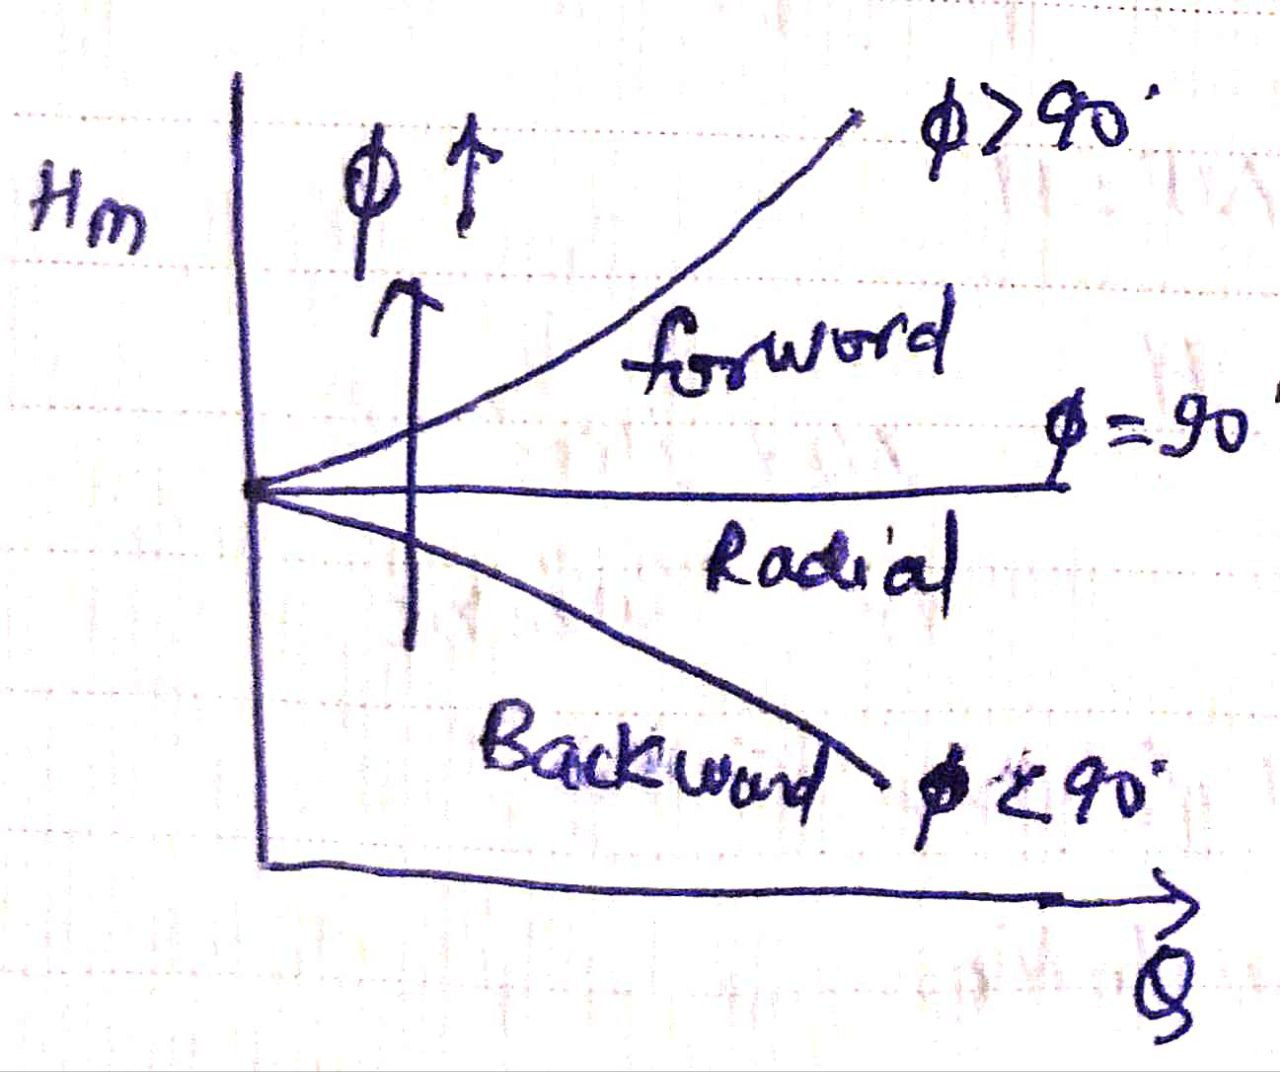 ϕ > 90°
Hm
ϕ ↑
forword
ϕ = 90°
Radial
Backward
ϕ < 90°
Q